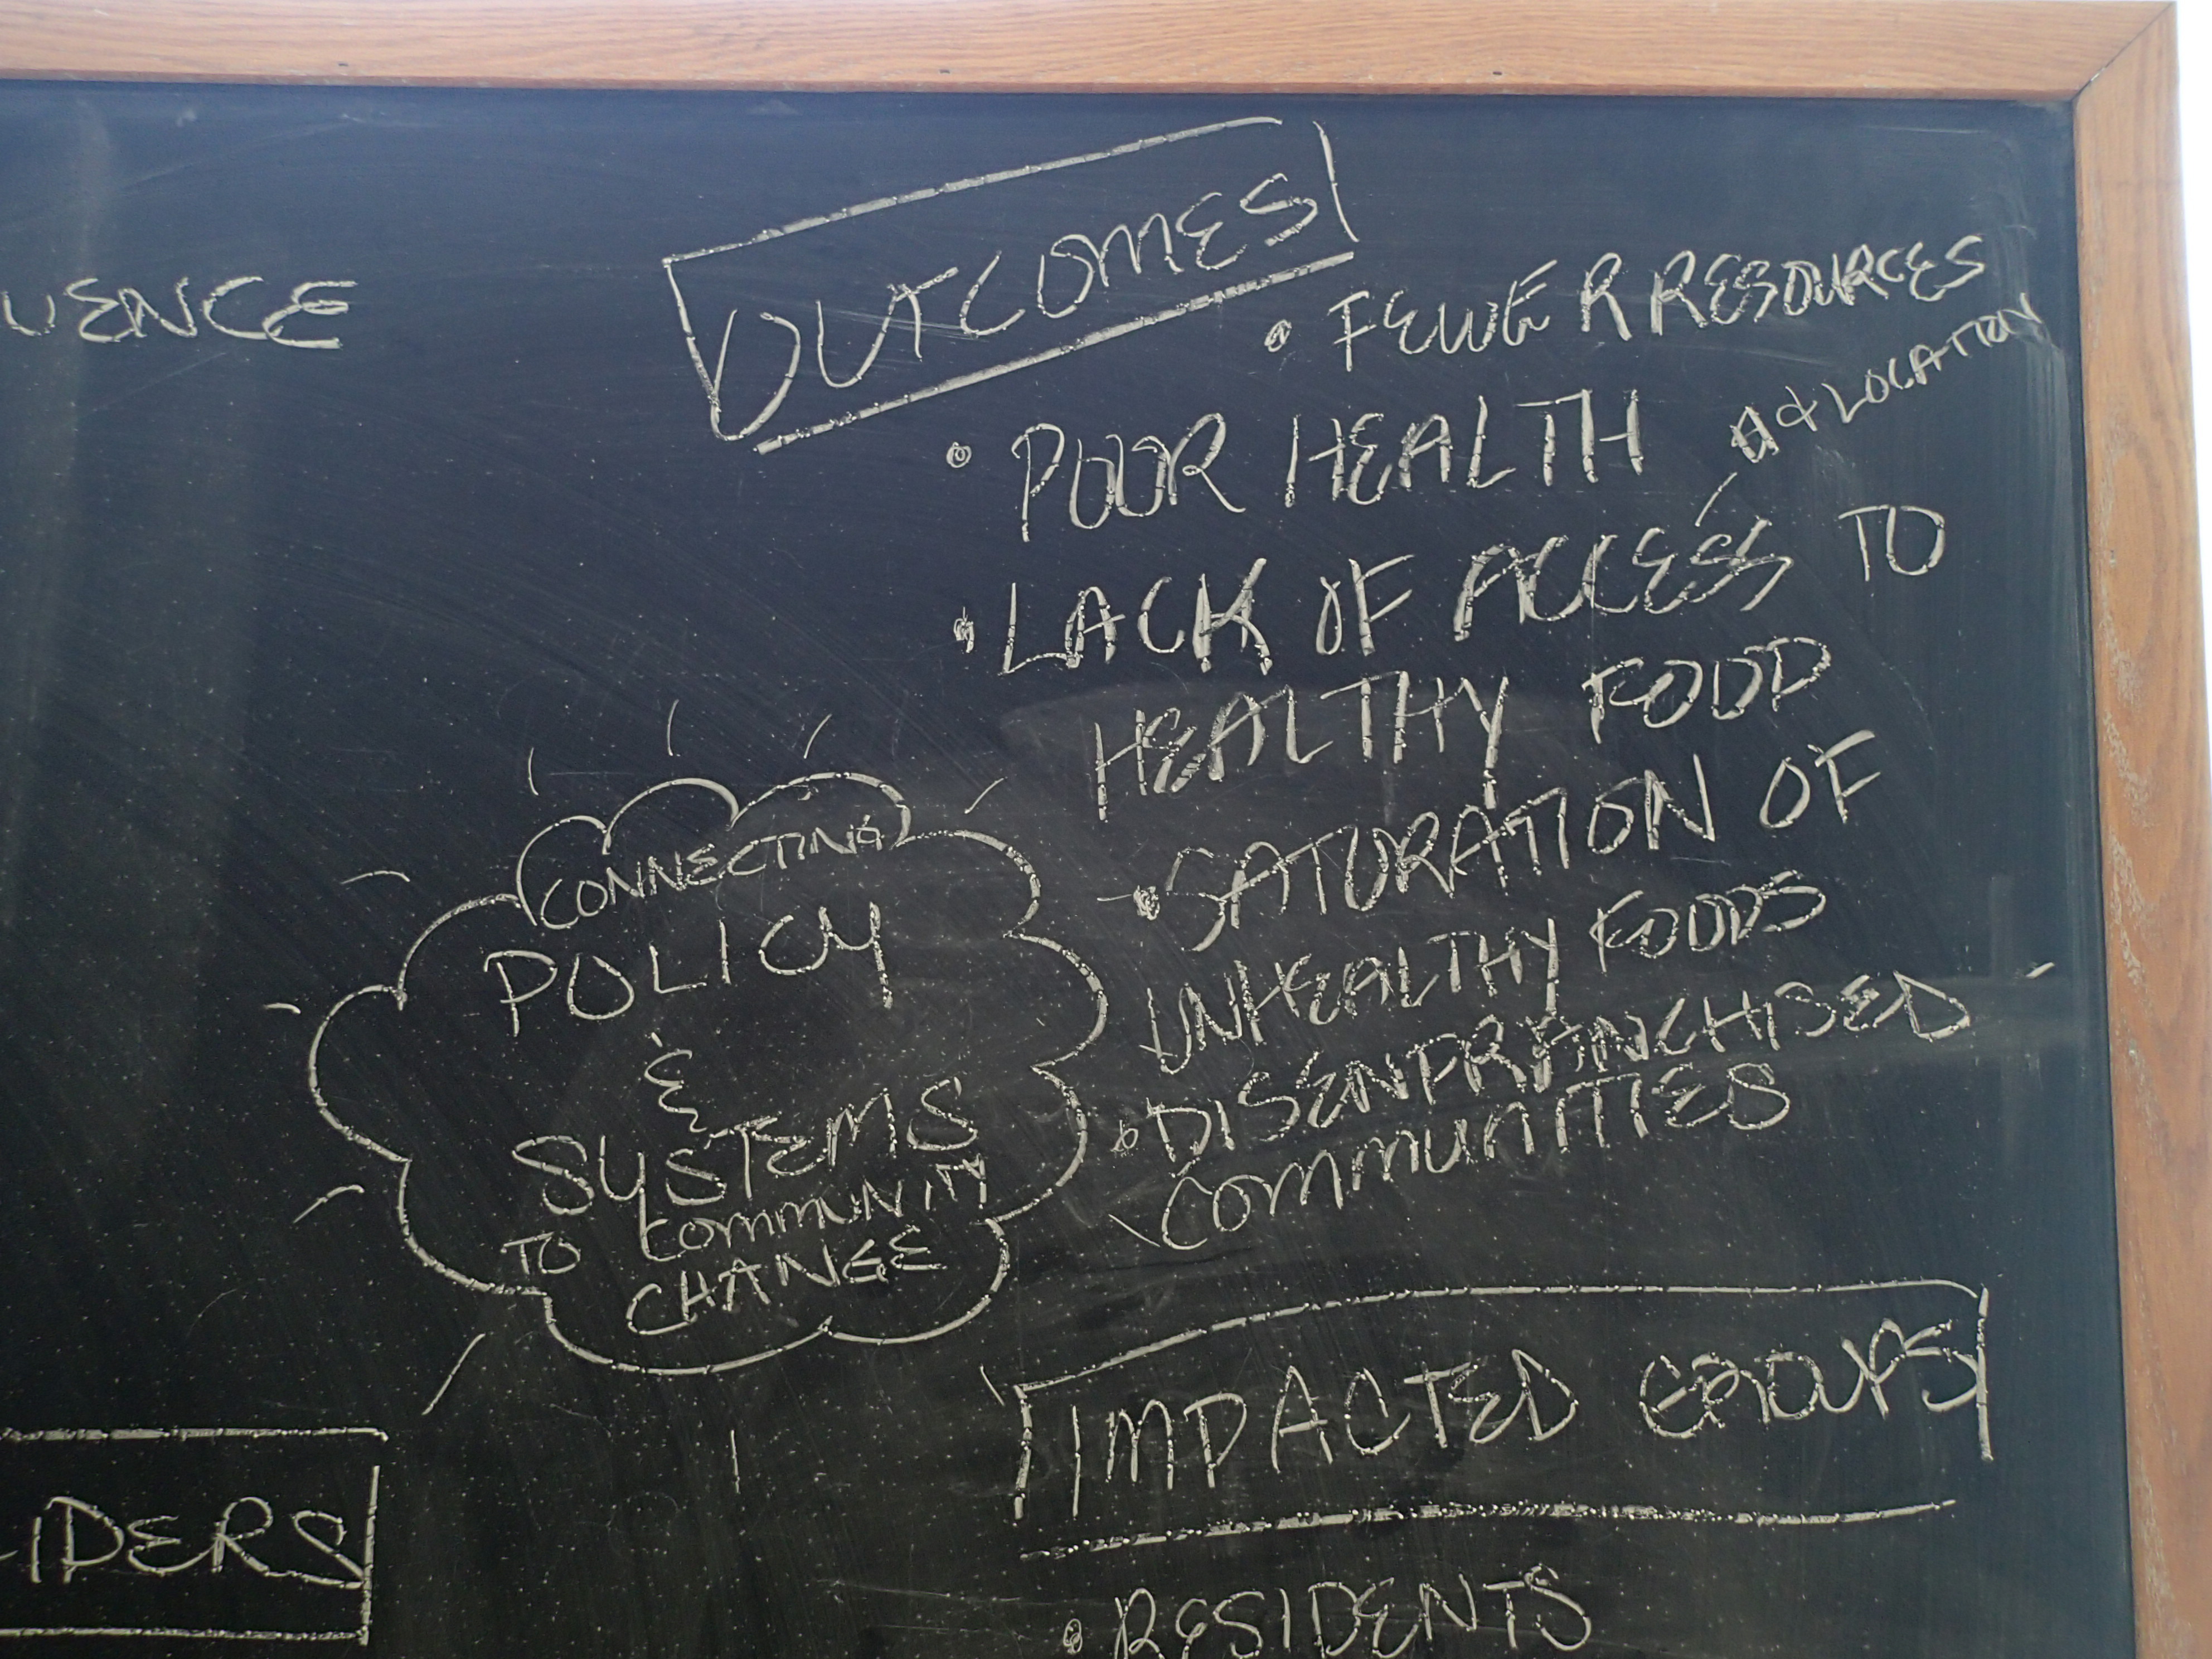 UENCE
OUTCOMES
• FEWER RESOURCES
• POOR HEALTH
& LOCATION
• LACK OF ACCESS TO
HEALTHY FOOD
• SATURATION OF
UNHEALTHY FOODS
• DISENFRANCHISED
COMMUNITIES
CONNECTING
POLICY
&
SYSTEMS
TO COMMUNITY
CHANGE
IMPACTED GROUPS
• RESIDENTS
IDERS